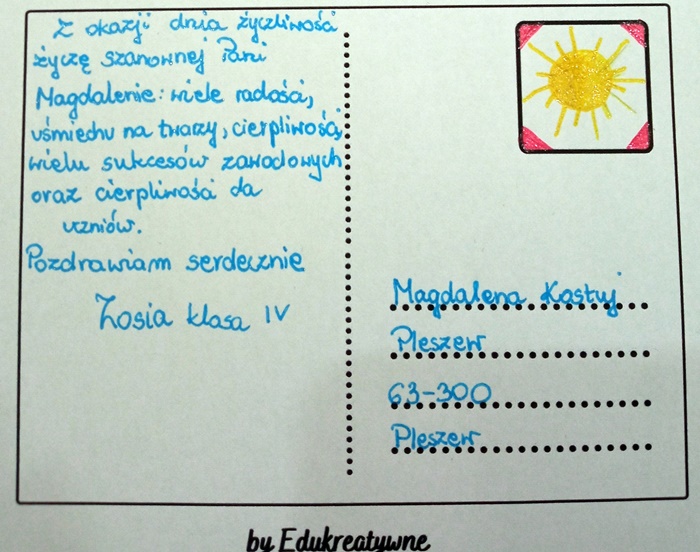 Z okazji dnia życzliwości
życzę szanownej Pani
Magdalenie: wiele radości,
uśmiechu na twarzy, cierpliwości,
wielu sukcesów zawodowych
oraz cierpliwości da
uczniów.
Pozdrawiam serdecznie
Zosia klasa IV
Magdalena Kostuj
Pleszew
63-300
Pleszew
by Edukreatywne